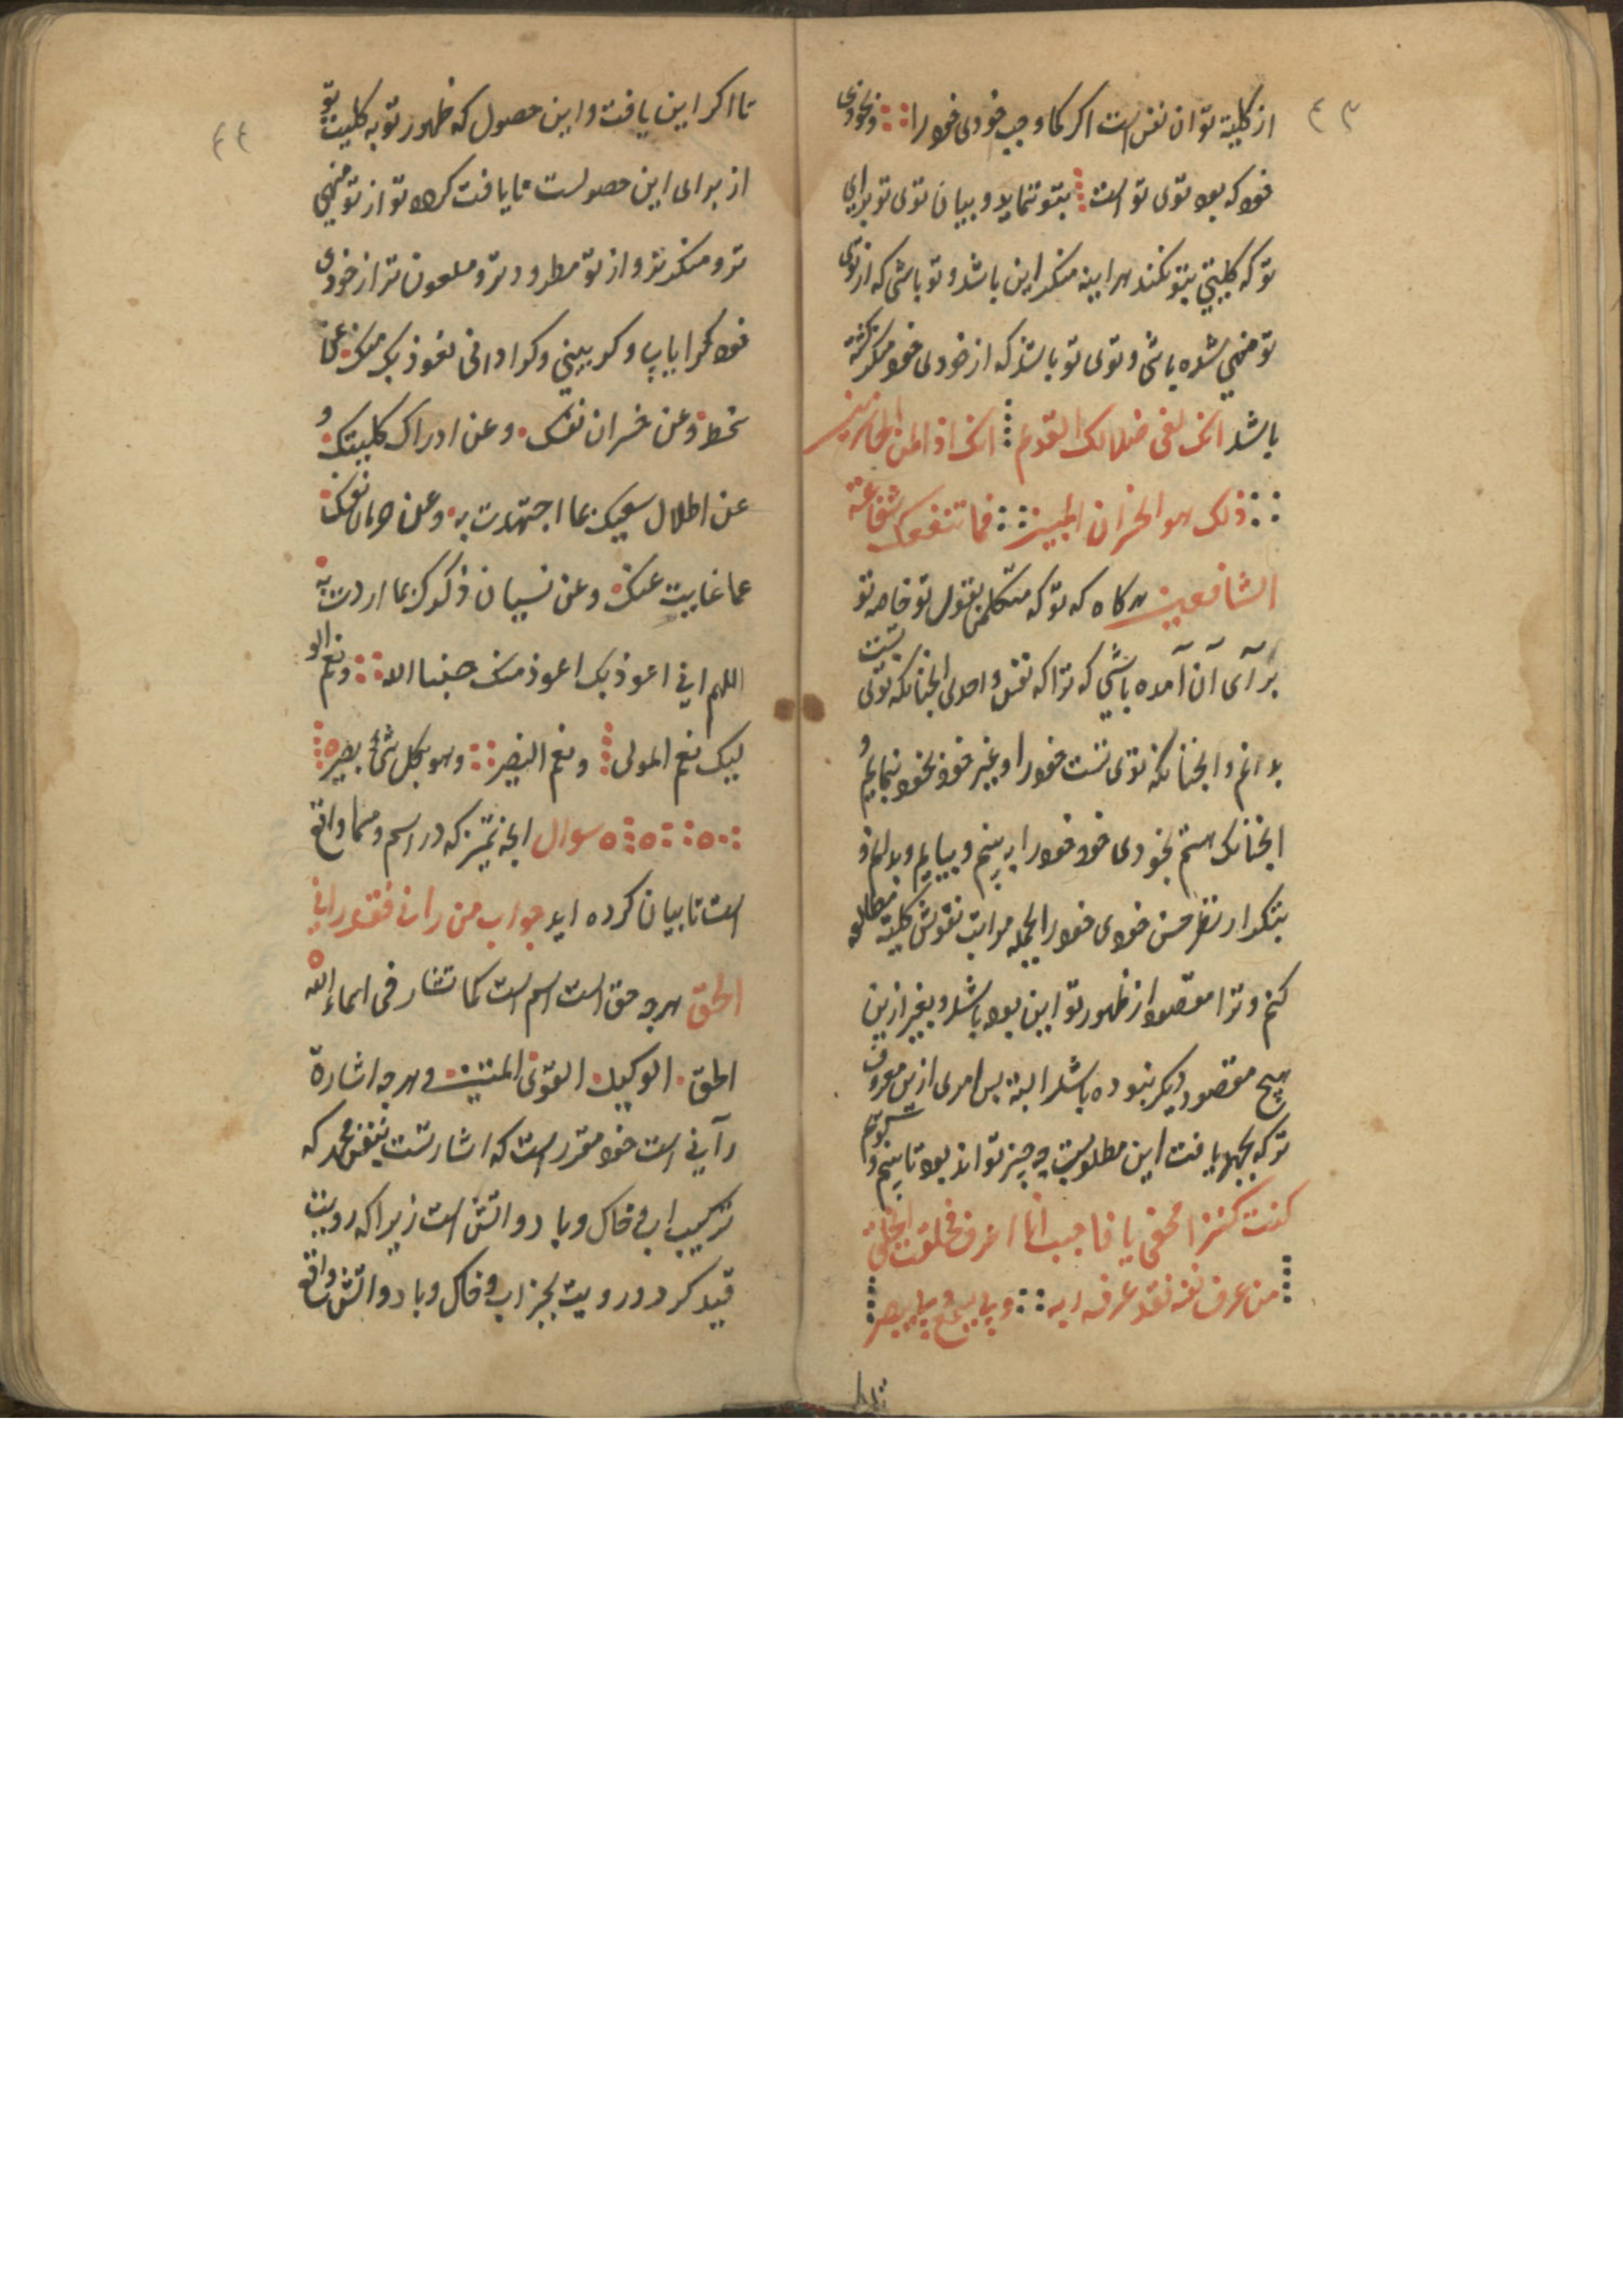 ٤٣
از کلیة تو ان نفس است اکر کما وجب خودی خود را و بخودی
خود که بود توی تو است بتو نماید و بیان توی تو برای
تو که کلیتی بتو نکند هراینه منکر این باشد و تو باشی که از توی
تو منهی شده باشی و توی تو باشد که از خودی خود منکر کشته
باشد انک لفی ضلالک القدیم انک اذا لمن الخاسرین
ذلک هو الخسران المبین فما تنفعک شفاعة
الشافعین هرکاه که تو که متکلمی بقول تو خاصه تو
برآی آن آمده باشی که ترا که نفس واحدی انجنانکه توی تست
بدانم و انجنانکه توی تست خود را و غیر خود بخود نمایم و
انجنانک هستم بخودی خود خود را به بینم و بیابم و بدانم و
بتکرار نظر حسن خودی خود را بجمله مراتب نقوش کلیة مطالعه
کنم و ترا مقصود از ظهور تو این بوده باشد و بغیر ازین
هیچ مقصود دیکر نبوده باشد البته بس امری ازین معروف
تر که بجهد یافت این مطلوبست چه چیز تواند بود تا بینم و شنویم
کنت کنزا مخفی یا فاحببت انا اعرف فخلقت الخلق
من عرف نفسه فقد عرف ربه و بی یسمع و بی یبصر
٤٤
تا اکر این یافت و این حصول که ظهور تو به کلیت تو
از برای این حصولست نایافت کردد تو از تو منهی
تر و منکر تر و از تو مطرود تر و ملعون تر از خودی
خود کجرا یابی و کرا بینی و کرا دانی نعوذ بک منک عن
سخط و عن خسران نفسک و عن ادراک کلیتک و
عن اطلال سعیک عما اجتهدت به و عن حرمان نفسک
عما غایبت عنک و عن نسیان ذکرک عما اردت به
اللهم انی اعوذ بک اعوذ منک حسبنا الله و نعم الو
لیک نعم المولی و نعم النصیر و هو بکل شئ بصیر
سوال انجه تمیز که در اسم و مسما واقع
است تا بیان کرده اید جواب من رانی فقد رانی
الحق هرجه حق است اسم است کما تشار فی اسماء الله
الحق الوکیل القوی المتین و هرجه اشارة
رآنی است خود مقرر است که اشارتست بنفس محمد که
ترکیب اب و خاک و باد و اتش است زیرا که رویت
قید کرد و رویت بجز اب و خاک و باد و اتش واقع